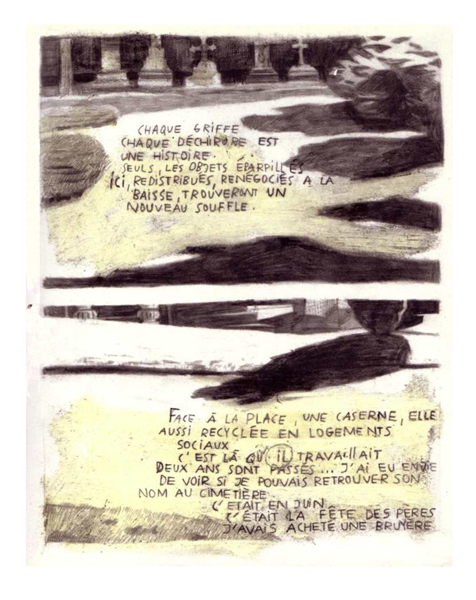 CHAQUE GRIFFE
CHAQUE DÉCHIRURE EST
UNE HISTOIRE.
SEULS, LES OBJETS ÉPARPILLÉS
ICI, REDISTRIBUÉS, RENÉGOCIÉS A LA
BAISSE, TROUVERONT UN
NOUVEAU SOUFFLE.
FACE À LA PLACE, UNE CASERNE, ELLE
AUSSI RECYCLÉE EN LOGEMENTS
SOCIAUX.
C'EST LÀ QU'IL TRAVAILLAIT
DEUX ANS SONT PASSÉS... J'AI EU ENVIE
DE VOIR SI JE POUVAIS RETROUVER SON
NOM AU CIMETIÈRE.
C'ÉTAIT EN JUIN
C'ÉTAIT LA FÊTE DES PÈRES
J'AVAIS ACHETÉ UNE BRUYÈRE